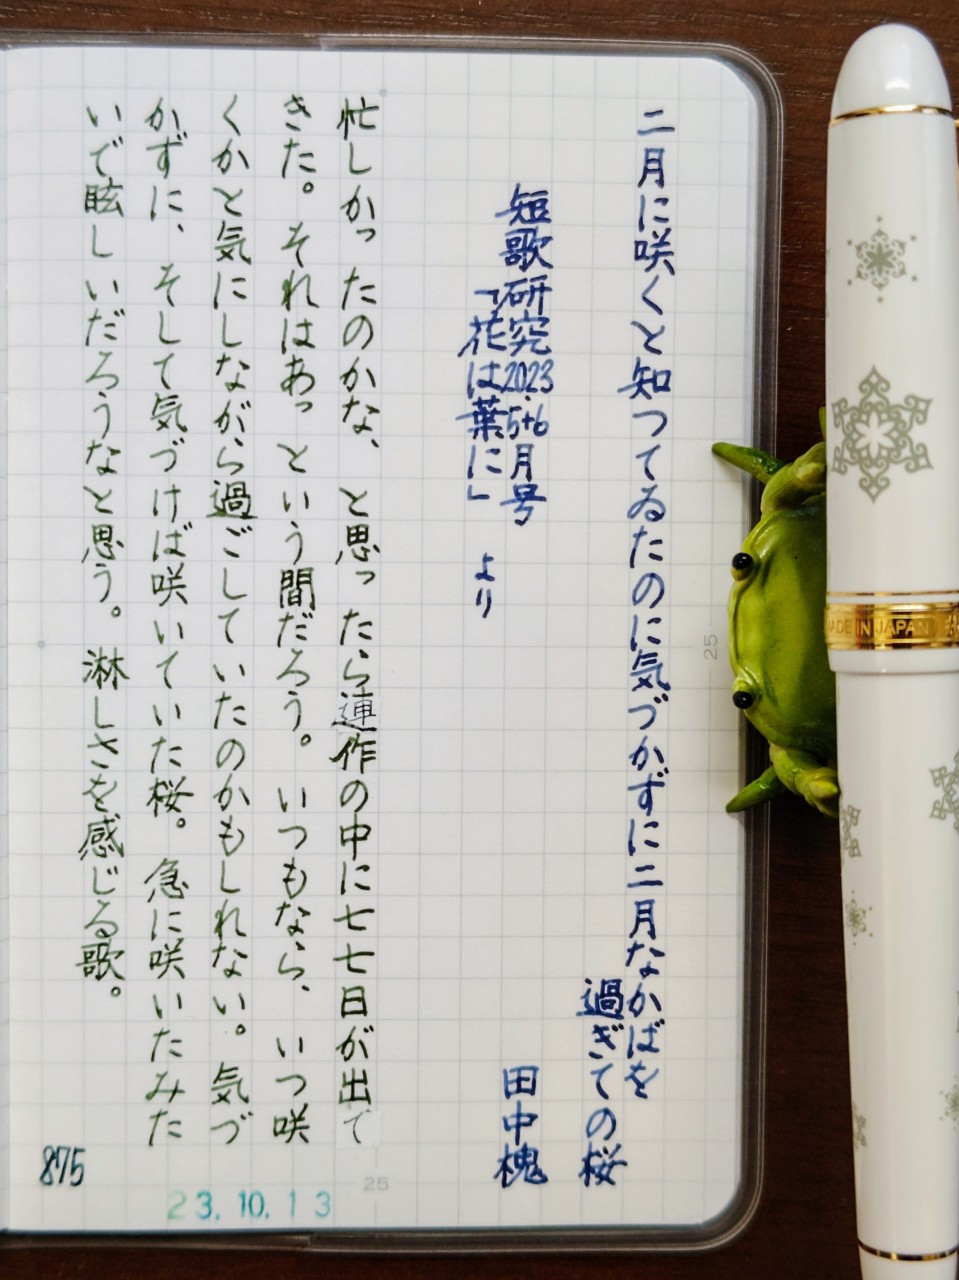 二月に咲くと知つてゐたのに気づかずに二月なかばを
過ぎての桜
田中槐
短歌研究2023.5+6月号
「花は葉に」 より
忙しかったのかな、と思ったら連作の中に七七日が出て
きた。それはあっという間だろう。いつもなら、いつ咲
くかと気にしながら過ごしていたのかもしれない。気づ
かずに、そして気づけば咲いていた桜。急に咲いたみた
いで眩しいだろうなと思う。淋しさを感じる歌。
875
23.10.13
25
25
MADE IN JAPAN